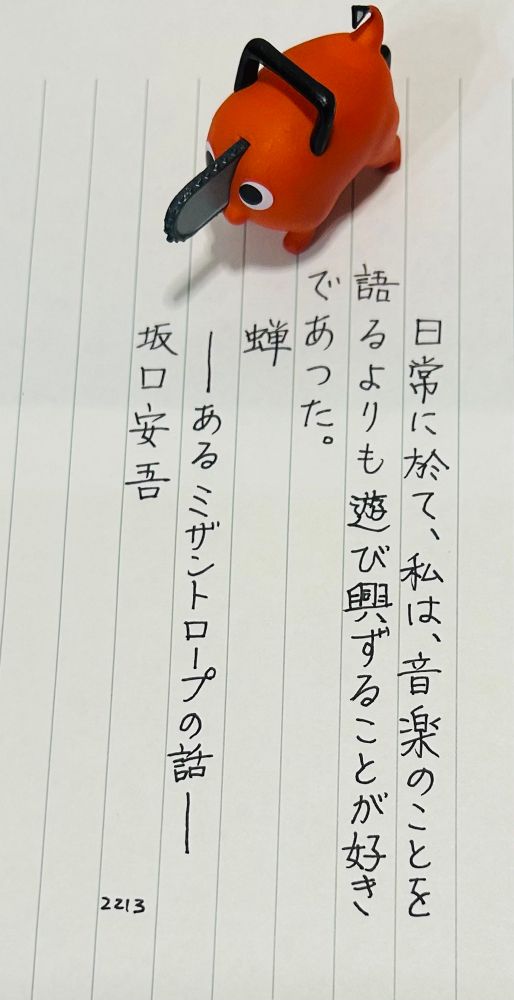 日常に於て、私は、音楽のことを
語るよりも遊び興ずることが好き
であった。
蝉
――あるミザントロープの話――
坂口安吾
2213